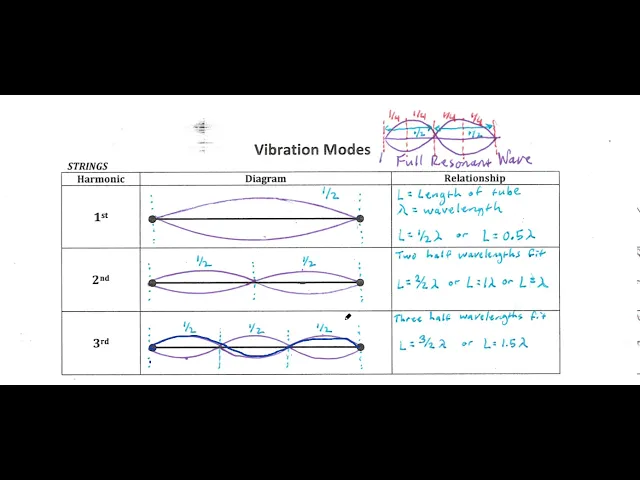 1/4 1/4 1/4 1/4
1/2 1/2
Full Resonant Wave
Vibration Modes
STRINGS
Harmonic Diagram Relationship
1st
1/2
L = Length of tube
λ = wavelength
L = 1/2 λ or L = 0.5λ
2nd
1/2 1/2
Two half wavelengths fit
L = 2/2 λ or L = 1λ or L = λ
3rd
1/2 1/2 1/2
Three half wavelengths fit
L = 3/2 λ or L = 1.5λ